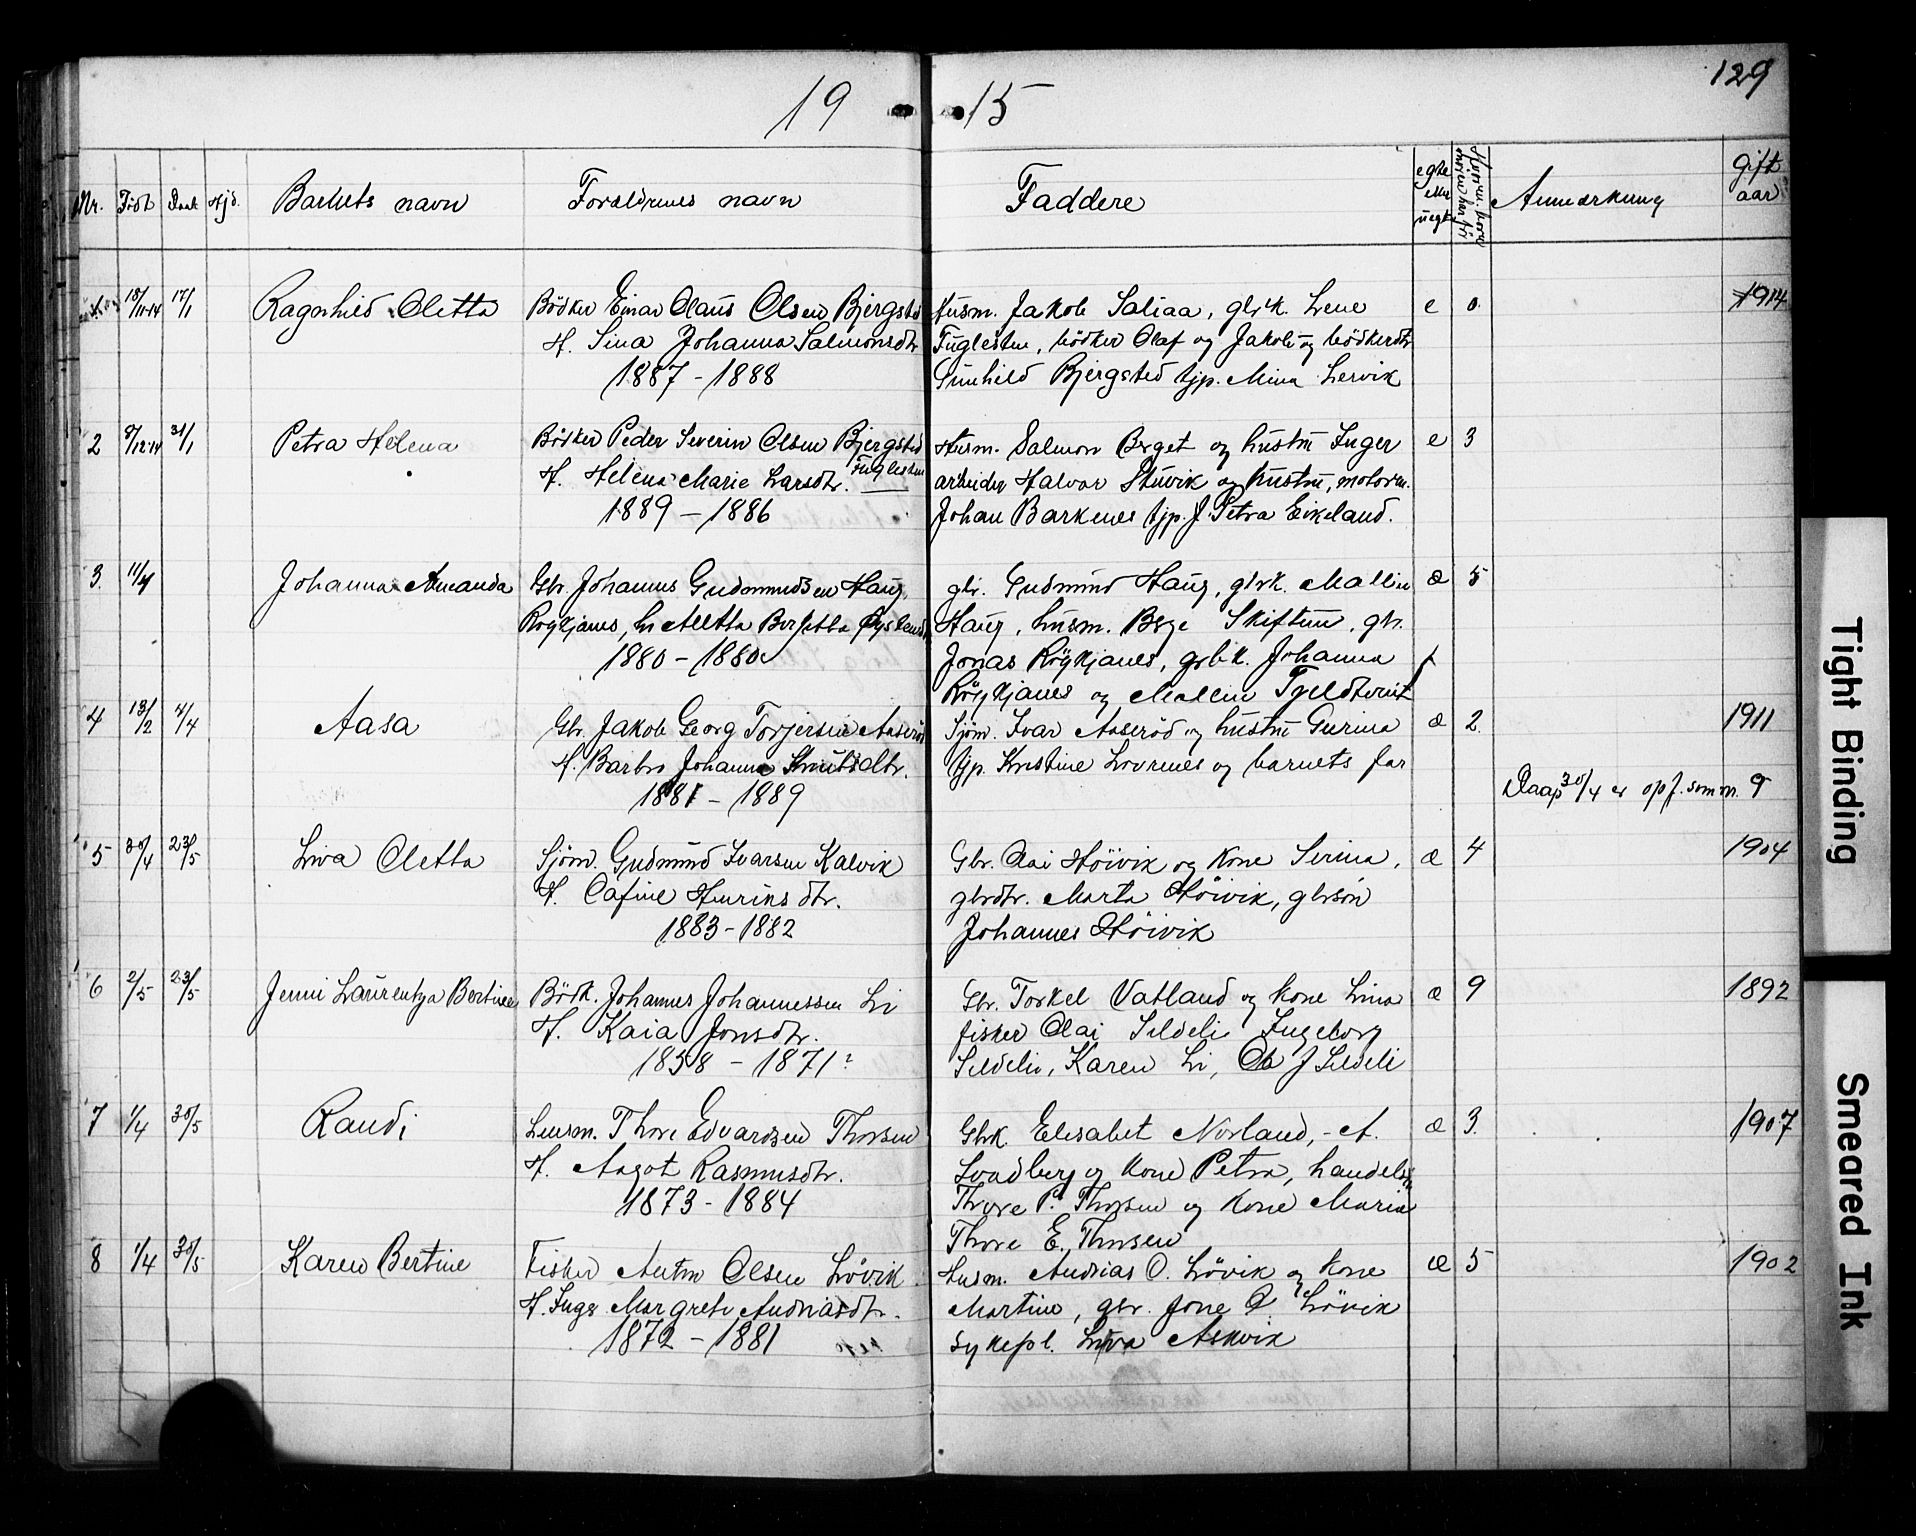 129
19 15
Nr. Födt Daab Hjd. Barnets navn Forældrenes navn Faddere egte eller uegte Anmærkning Gift aar
18/11-14 17/1 Ragnhild Oletta Bödker Einar Olaus Olsen Bjergsted Husm. Jakob Saliaa, gbrk. Lene e 0 1914
H. Sina Johanna Salmonsdtr Fuglesten, bödker Olaf og Jakob og bödkerdtr
1887 - 1888 Gunhild Bjergsted tjp. Mina Lervik
2 8/12-14 31/1 Petra Helena Bödker Peder Severin Olsen Bjergsted Husm. Salmon Berget og hustru Inger e 3
Fuglesten
H. Helena Marie Larsdtr. arbeider Halvor Stuvik og hustru, motorm.
1889 - 1886 Johan Barkenes tjp. J. Petra Eikeland.
3 11/4 Johanna Amanda Gbr. Johannes Gudmundsen Haug, gbr. Gudmund Haug, gbrk. Mallin æ 5
Røykjanes, h. Aletta Bergetta Haug, husm. Berge Skiftun, gbr.
1880 - 1880 Jonas Röykjanes, gbrk. Johanna
Röykjanes og Mallin Tjeldtveit
4 13/2 4/4 Aasa Gbr. Jakob Georg Torjersen Aaseröd Sjöm. Ivar Aaseröd og hustru Gurina æ 2 1911
H. Barbro Johanna Knutsdtr. tjp. Kristine Lovrenes og barnets far
1881 - 1889 Daap 30/4 er opf. som n. 9
5 30/4 23/5 Liva Oletta Sjöm. Gudmund Ivarsen Kalvik Gbr. Olai Höivik og kone Serina, æ 4 1904
H. Cafine Henriksdtr. gbrdtr. Marta Höivik, gbrsön
1883 - 1882 Johannes Höivik
6 2/5 23/5 Jenni Laurentza Bertine Bödk. Johannes Johannessen Li Gbr. Torkel Vatland og kone Lina æ 9 1892
H. Kaia Jonsdtr. fisker Olai Sildeli Ingeborg
1858 - 1871? Sildeli, Karen Li, Ola J Sildeli
7 1/4 30/5 Randi Lensm. Thore Edvardsen Thorsen Gbrk. Elisabet Norland, - A. æ 3 1907
H. Aagot Rasmusdtr. Svadberg og kone Petra, handelsm.
1873 - 1884 Thore P. Thorsen og kone Maria
Thore E. Thorsen
8 1/4 30/5 Karen Bertine Fisker Anton Olsen Lövik Husm. Andrias O. Lövik og kone æ 5 1902
H. Inger Margrete Andriasdtr. Martine, gbr. Jone O Lövik
1872 - 1881 sykepl. Liva Askvik
Tight Binding
Smeared Ink